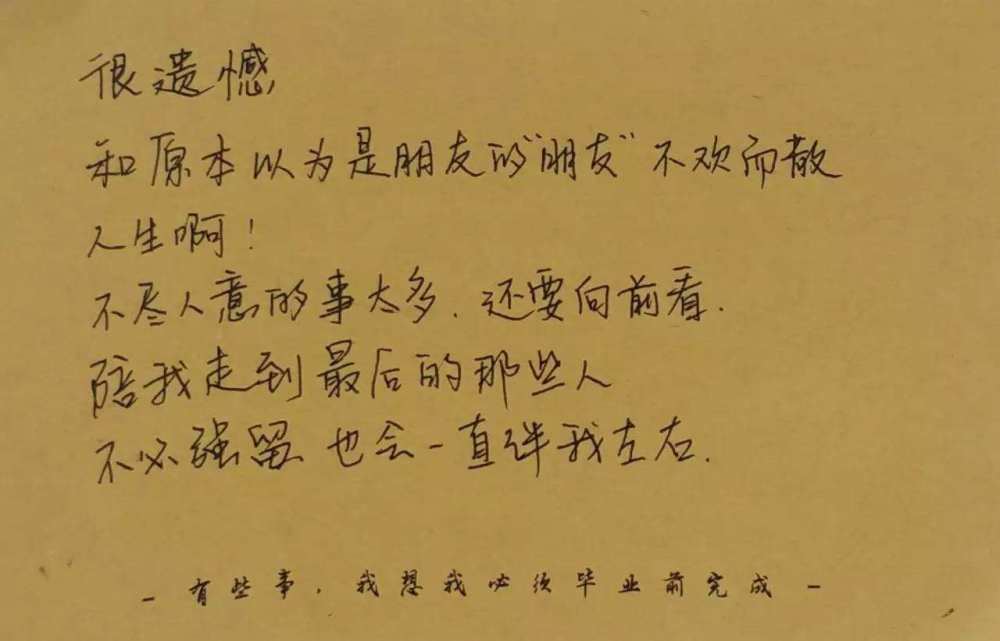 很遗憾
和原本以为是朋友的"朋友"不欢而散
人生啊!
不尽人意的事太多.还要向前看.
陪我走到最后的那些人
不必强留 也会一直伴我左右.
- 有些事,我想我必须毕业前完成 -